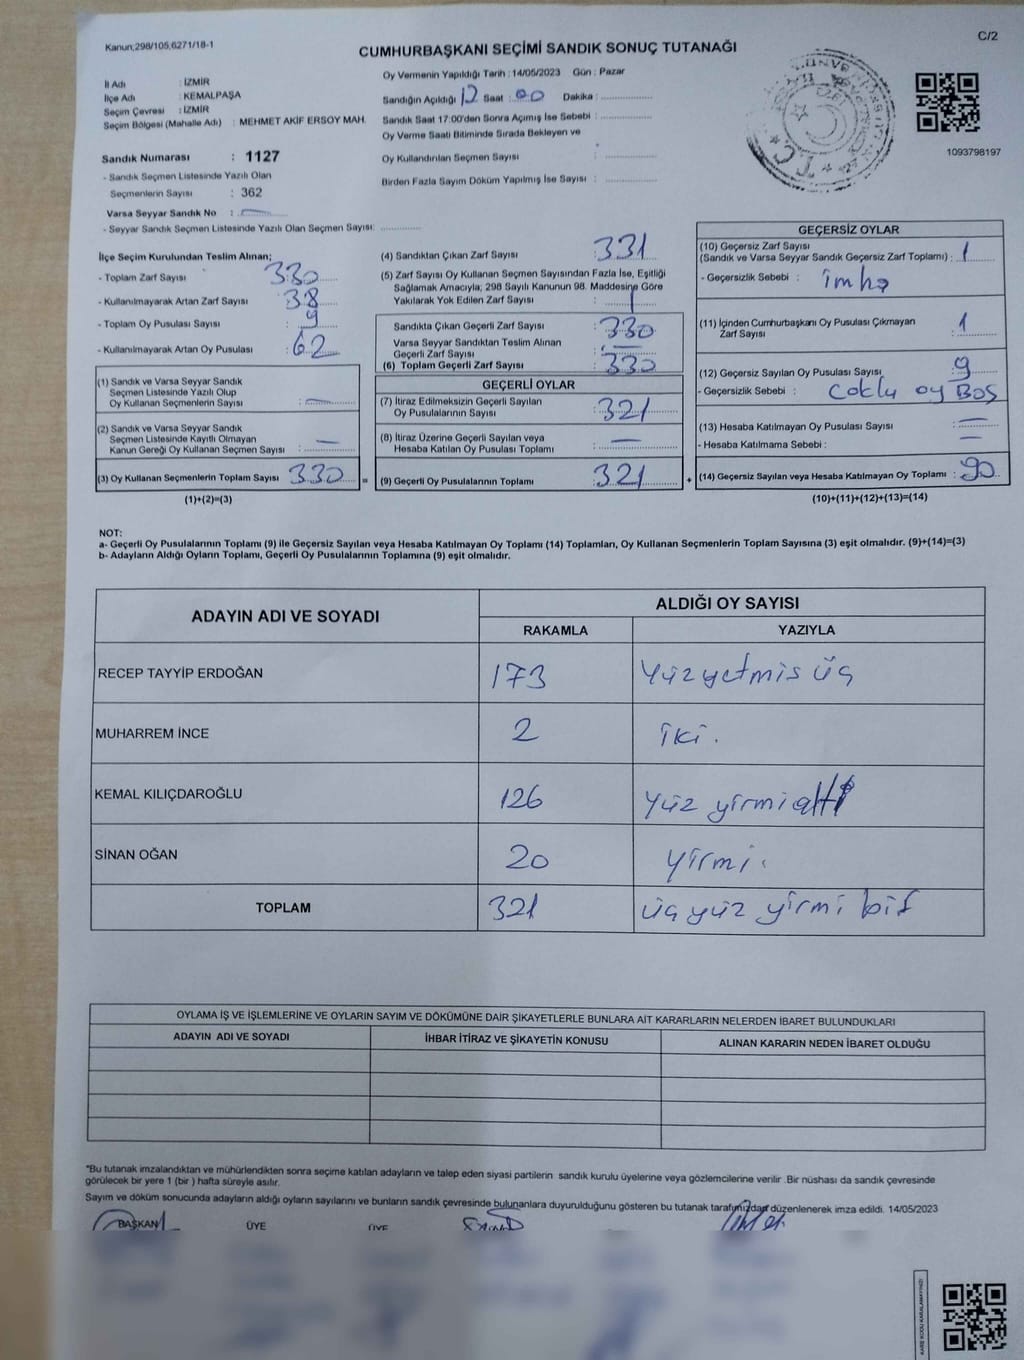 Kanun;298/105,6271/18-1
C/2
CUMHURBAŞKANI SEÇİMİ SANDIK SONUÇ TUTANAĞI
İl Adı : İZMİR
İlçe Adı : KEMALPAŞA
Seçim Çevresi : İZMİR
Seçim Bölgesi (Mahalle Adı) : MEHMET AKİF ERSOY MAH.
Sandık Numarası : 1127
- Sandık Seçmen Listesinde Yazılı Olan
Seçmenlerin Sayısı : 362
Varsa Seyyar Sandık No :
- Seyyar Sandık Seçmen Listesinde Yazılı Olan Seçmen Sayısı:
Oy Vermenin Yapıldığı Tarih : 14/05/2023 Gün : Pazar
Sandığın Açıldığı 17 Saat : 00 Dakika :
Sandık Saat 17:00'den Sonra Açımış İse Sebebi :
Oy Verme Saati Bitiminde Sırada Bekleyen ve
Oy Kullandırılan Seçmen Sayısı :
Birden Fazla Sayım Döküm Yapılmış İse Sayısı :
1093798197
İlçe Seçim Kurulundan Teslim Alınan;
- Toplam Zarf Sayısı : 330
- Kullanılmayarak Artan Zarf Sayısı : 38
- Toplam Oy Pusulası Sayısı : 9
- Kullanılmayarak Artan Oy Pusulası : 62
(1) Sandık ve Varsa Seyyar Sandık
Seçmen Listesinde Yazılı Olup
Oy Kullanan Seçmenlerin Sayısı :
(2) Sandık ve Varsa Seyyar Sandık
Seçmen Listesinde Kayıtlı Olmayan
Kanun Gereği Oy Kullanan Seçmen Sayısı :
(3) Oy Kullanan Seçmenlerin Toplam Sayısı 330
(1)+(2)=(3)
(4) Sandıktan Çıkan Zarf Sayısı : 331
(5) Zarf Sayısı Oy Kullanan Seçmen Sayısından Fazla İse, Eşitliği
Sağlamak Amacıyla; 298 Sayılı Kanunun 98. Maddesine Göre
Yakılarak Yok Edilen Zarf Sayısı : 1
Sandıkta Çıkan Geçerli Zarf Sayısı : 330
Varsa Seyyar Sandıktan Teslim Alınan
Geçerli Zarf Sayısı :
(6) Toplam Geçerli Zarf Sayısı : 330
GEÇERLİ OYLAR
(7) İtiraz Edilmeksizin Geçerli Sayılan
Oy Pusulalarının Sayısı : 321
(8) İtiraz Üzerine Geçerli Sayılan veya
Hesaba Katılan Oy Pusulası Toplamı :
(9) Geçerli Oy Pusulalarının Toplamı : 321
GEÇERSİZ OYLAR
(10) Geçersiz Zarf Sayısı
(Sandık ve Varsa Seyyar Sandık Geçersiz Zarf Toplamı) : 1
- Geçersizlik Sebebi : imha
(11) İçinden Cumhurbaşkanı Oy Pusulası Çıkmayan
Zarf Sayısı : 1
(12) Geçersiz Sayılan Oy Pusulası Sayısı : 9
- Geçersizlik Sebebi : Coklu oy Boş
(13) Hesaba Katılmayan Oy Pusulası Sayısı :
- Hesaba Katılmama Sebebi :
(14) Geçersiz Sayılan veya Hesaba Katılmayan Oy Toplamı :
(10)+(11)+(12)+(13)=(14)
NOT:
a- Geçerli Oy Pusulalarının Toplamı (9) ile Geçersiz Sayılan veya Hesaba Katılmayan Oy Toplamı (14) Toplamları, Oy Kullanan Seçmenlerin Toplam Sayısına (3) eşit olmalıdır. (9)+(14)=(3)
b- Adayların Aldığı Oyların Toplamı, Geçerli Oy Pusulalarının Toplamına (9) eşit olmalıdır.
ADAYIN ADI VE SOYADI ALDIĞI OY SAYISI
RAKAMLA YAZIYLA
RECEP TAYYİP ERDOĞAN 173 Yüzyetmis üç
MUHARREM İNCE 2 iki.
KEMAL KILIÇDAROĞLU 126 yüz yirmi altı
SİNAN OĞAN 20 yirmi.
TOPLAM 321 üçyüz yirmi bir
OYLAMA İŞ VE İŞLEMLERİNE VE OYLARIN SAYIM VE DÖKÜMÜNE DAİR ŞİKAYETLERLE BUNLARA AİT KARARLARIN NELERDEN İBARET BULUNDUKLARI
ADAYIN ADI VE SOYADI İHBAR İTİRAZ VE ŞİKAYETİN KONUSU ALINAN KARARIN NEDEN İBARET OLDUĞU
*Bu tutanak imzalandıktan ve mühürlendikten sonra seçime katılan adayların ve talep eden siyasi partilerin sandık kurulu üyelerine veya gözlemcilerine verilir .Bir nüshası da sandık çevresinde
görülecek bir yere 1 (bir ) hafta süreyle asılır.
Sayım ve döküm sonucunda adayların aldığı oyların sayılarını ve bunların sandık çevresinde bulunanlara duyurulduğunu gösteren bu tutanak tarafımızdan düzenlenerek imza edildi. 14/05/2023
BAŞKAN ÜYE ÜYE